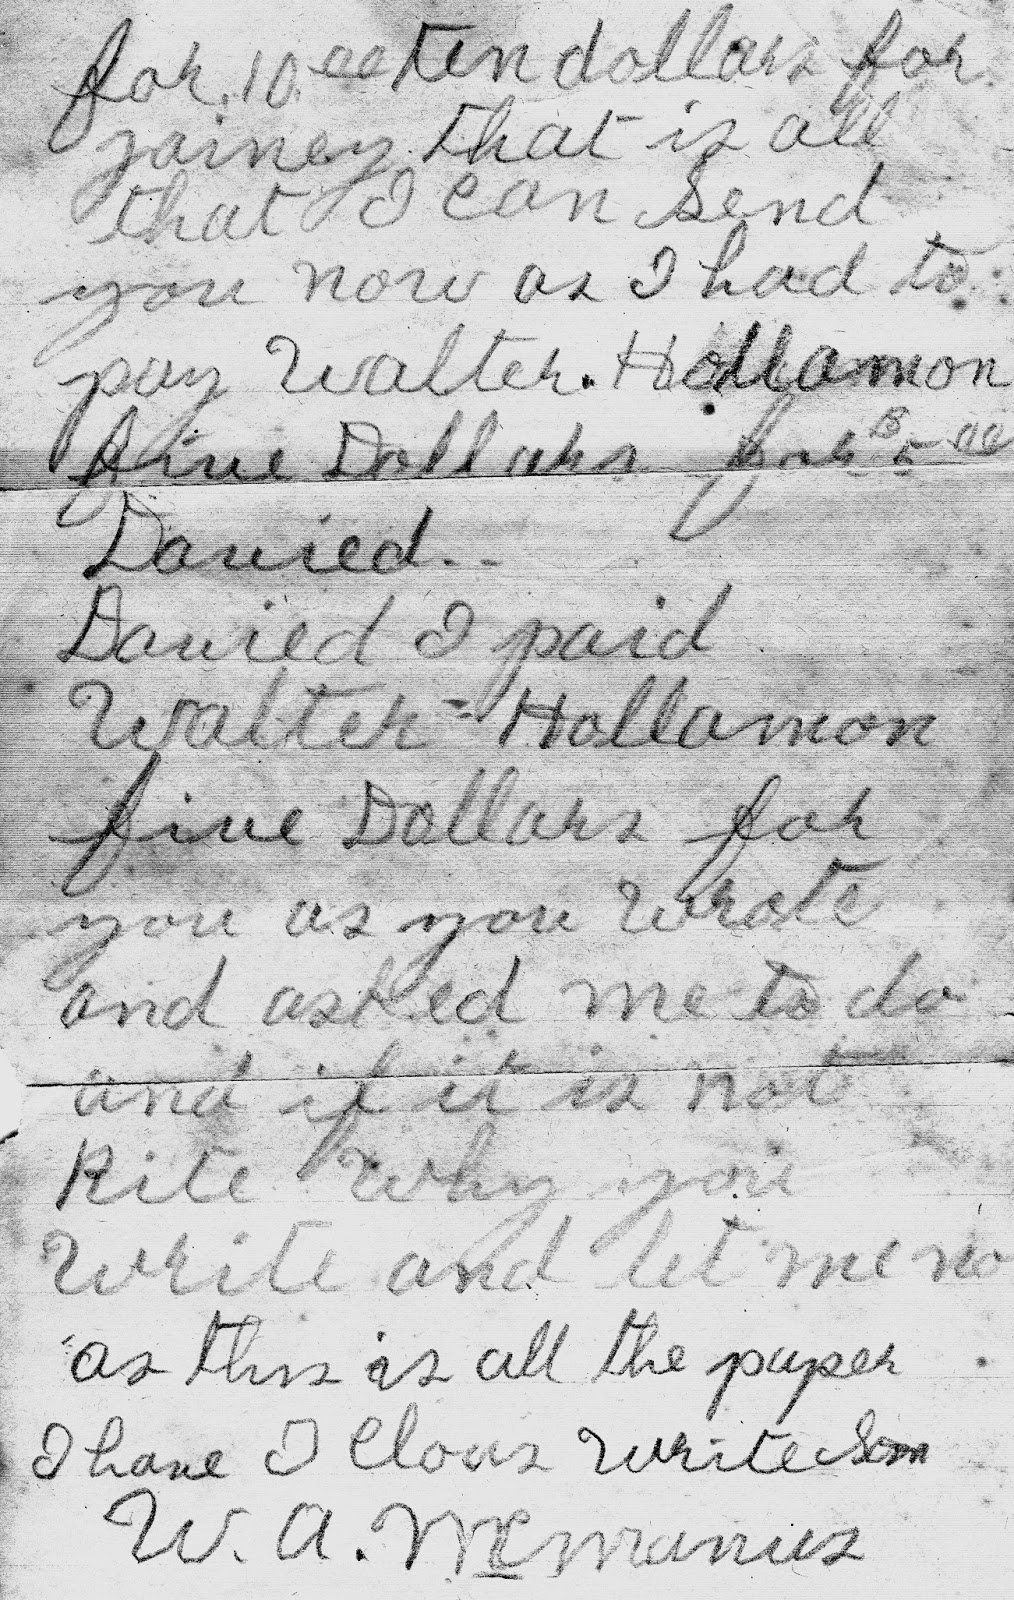 for 10.00 ten dollars for
yainey that is all
that I can send
you now as I had to
pay Walter. Hollamon
five Dollars for $5.00
Davied..
Davied I paid
Walter - Hollamon
five Dollars for
you as you wrote
and asked me to do
and if it is not
Rite why you
write and let me no
as this is all the paper
I have I Clous write Som
W. A. McManus